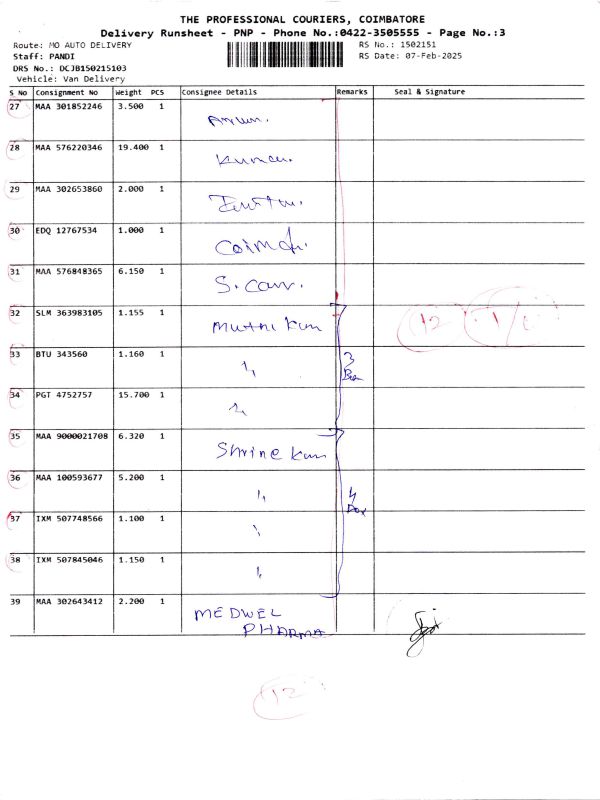 THE PROFESSIONAL COURIERS, COIMBATORE
Delivery Runsheet - PNP - Phone No.:0422-3505555 - Page No.:3
Route: MO AUTO DELIVERY RS No.: 1502151
Staff: PANDI RS Date: 07-Feb-2025
DRS No.: DCJB150215103
Vehicle: Van Delivery
S No Consignment No Weight PCS Consignee Details Remarks Seal & Signature
27 MAA 301852246 3.500 1
28 MAA 576220346 19.400 1
29 MAA 302653860 2.000 1
30 EDQ 12767534 1.000 1
31 MAA 576848365 6.150 1
32 SLM 363983105 1.155 1 12
33 BTU 343560 1.160 1 3
34 PGT 4752757 15.700 1
35 MAA 9000021708 6.320 1 Shrine
36 MAA 100593677 5.200 1 4
37 IXM 507748566 1.100 1
38 IXM 507845046 1.150 1
39 MAA 302643412 2.200 1 MEDWEL
PHARMA
12